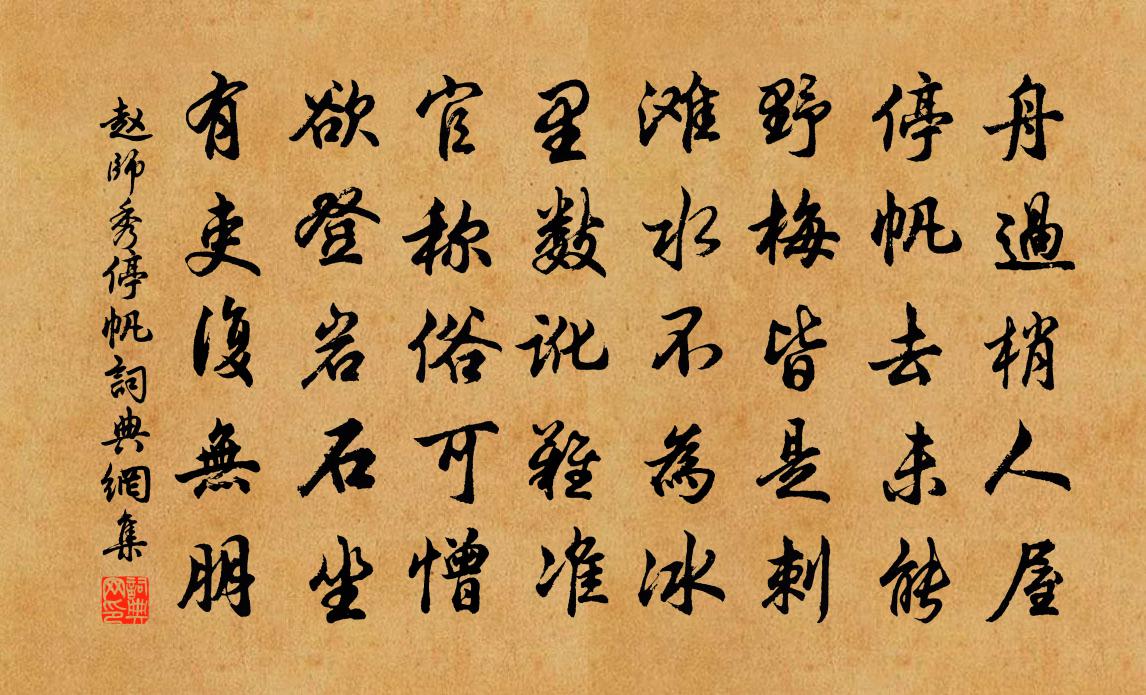 舟過梢人屋
停帆去未能
野梅皆是刺
滩水不為冰
里數訛難准
官称俗可憎
欲登岩石坐
有吏復無朋
赵師秀停帆詞典網集
詞典网印